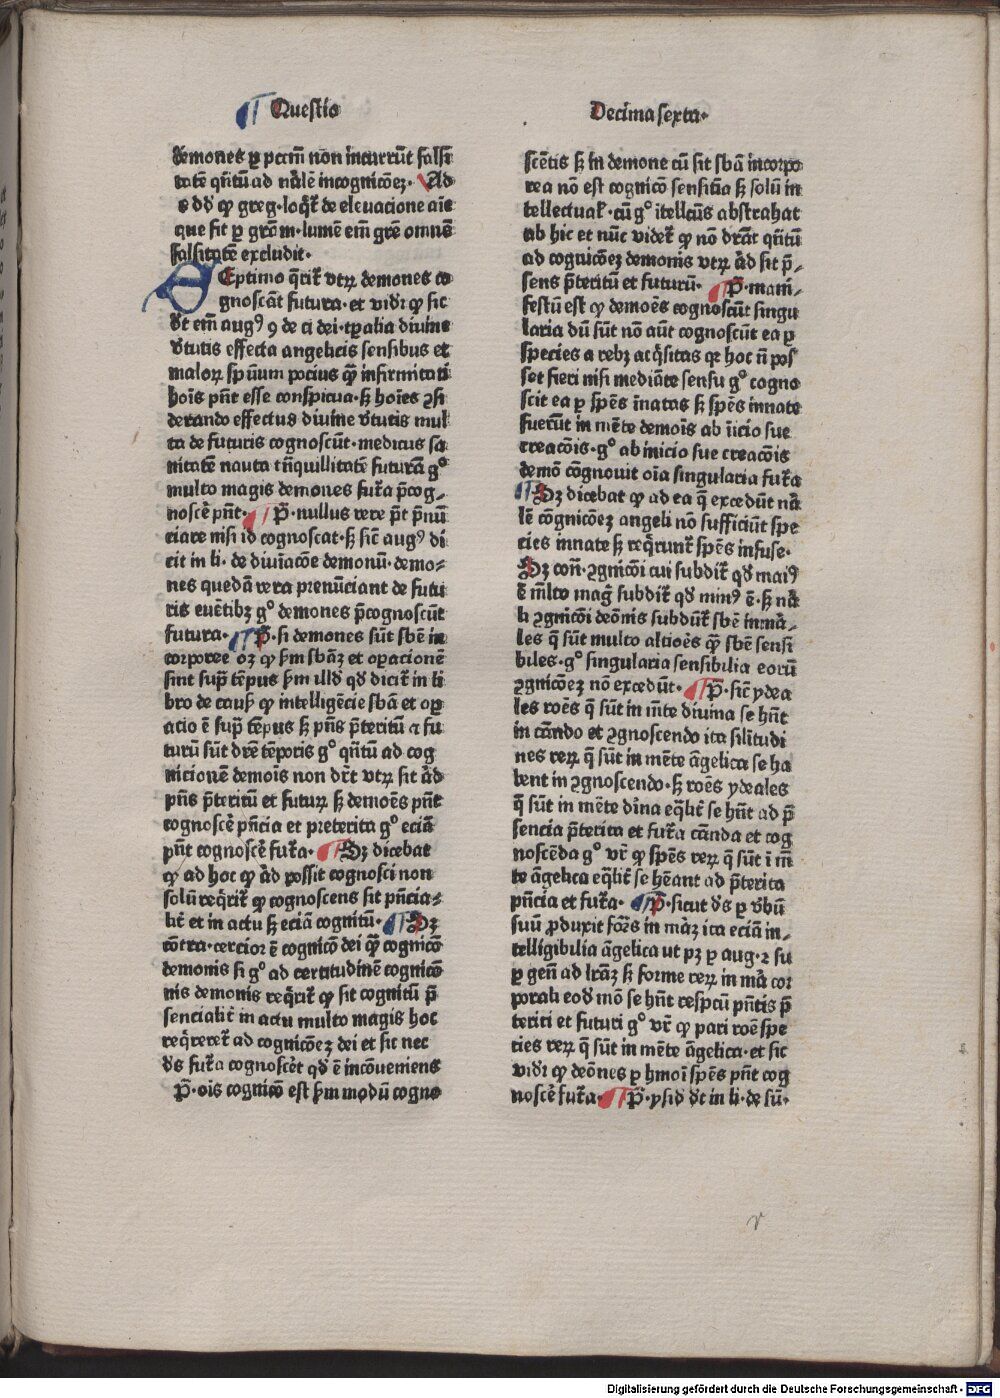 ¶ Questio
Decima sexta·
demones ꝑ pctm̄ non incurrūt falsi
tatē qn̄tū ad nālē incognicōeꝫ· Ad
8 dd̄ ꝙ greg·loq̄r̄ de elevacione aīe
que fit ꝑ grām·lumē em̄ grē omnē
falsitatē excludit·
SEptimo q̄rit̄ vtꝝ demones co
gnoscāt futura·et vidr̄ ꝙ sic
d̄t em̄ augꝰ 9 de ci dei·tꝑalia divine
v̄tutis effecta angelicis sensibus et
maloꝝ spūum pocius q̄ꝫ infirmitati
hoīs pn̄t esse conspicua·sꝫ hoīes ꝯsi
derando effectus divine v̄tutis mul
ta de futuris cognoscūt·medicus sa
nitatē nauta tn̄quillitatē futurā gͦ
multo magis demones fut̄a p̄cog-
noscē pn̄t· ¶ P̄·nullus vere pn̄t p̄nū
ciare nisi id cognoscat·sꝫ sic̄ augꝰ di
cit in li· de diviācōe demonū·demo-
nes quedā vera prenūciant de futu
ris evētibꝫ gͦ demones p̄cognoscūt
futura· ¶ P̄·si demones sūt sbē in
corporee oꝫ ꝙ ẜm sbāꝫ et oꝑacionē
sint sup̄ tēpus ẜm illd̄ qd̄ dicit̄ in li
bro de cauẜ ꝙ intelligēcie sbā et oꝑ
acio ē sup̄ tēpus sꝫ pn̄s p̄teritū ⁊ fu
turū sūt dr̄e tēporis gͦ qn̄tū ad cog
nicionē demoīs non dr̄t vtꝝ sit ād
pn̄s p̄teritū et futuꝝ sꝫ demoēs pn̄t
cognoscē pn̄cia et preterita gͦ eciā
pn̄t cognoscē fut̄a· ¶ Sꝫ dicebat
ꝙ ad hoc ꝙ ād possit cognosci non
solū req̄rit̄ ꝙ cognoscens sit pn̄cia-
lit̄ et in actu sꝫ eciā cognitū· ¶ Sꝫ
cōtra·cercior ē cognicō dei q̄ꝫ cognicō
demonis si gͦ ad certitudinē cognicō
nis demonis req̄rit̄ ꝙ sit cognitū p̄
sencialit̄ in actu multo magis hoc
req̄reret̄ ad cognicōeꝫ dei et sic nec
ds̄ fut̄a cognoscēt qd̄ ē incōveniens
P̄·oīs cognicō est ẜm modū cogno
scētis sꝫ in demone cū sit sbā incorpo
rea nō est cognicō sensitīa sꝫ solū in
tellectual̄·cū gͦ ītellcūs abstrahat
ab hic et nūc videt̄ ꝙ nō dr̄āt qn̄tū
ad cognicōeꝫ demonis vtꝝ ād sit p̄-
sens p̄teritū et futurū· ¶ P̄·mani-
festū est ꝙ demoēs cognoscūt singu
laria dū sūt nō aūt cognoscūt ea ꝑ
species a rebꝫ acq̄sitas qꝛ hoc n̄ pos
set fieri nisi mediāte sensu gͦ cogno
scit ea ꝑ spēs īnatas sꝫ spēs innate
fuerūt in mēte demoīs ab īicio sue
creacōis·gͦ ab inicio sue creacōis
demō cōgnovit oīa singularia fut̄a
¶ Sꝫ dicebat ꝙ ad ea q̄ excedūt nā
lē cōgnicōeꝫ angeli nō sufficiūt spe
cies innate sꝫ req̄runt̄ spēs infuse·
Sꝫ con̄·ꝯgnicōi cui subdit̄ qd̄ maiꝰ
ē m̄lto maḡ subdit̄ qd̄ minꝰ ē·sꝫ nā
li ꝯgnicōi deōnis subdūt̄ sbē inmā-
les q̄ sūt multo altioēs q̄ꝫ sbē sensi
biles·gͦ singularia sensibilia eorū
ꝯgnicōeꝫ nō excedūt· ¶ P̄·sic̄ ydea
les rōēs q̄ sūt in m̄te divina se hn̄t
in cāndo et ꝯgnoscendo ita silītudi
nes reꝝ q̄ sūt in mēte āgelica se ha
bent in ꝯgnoscendo·sꝫ rōēs ydeales
q̄ sūt in mēte dīna eq̄lit̄ se hn̄t ad p̄
sencia p̄terita et fut̄a cānda et cog
noscēda gͦ vr̄ ꝙ spēs reꝝ q̄ sūt ī m̄
te āgelica eq̄lit̄ se hēant ad p̄terita
pn̄cia et fut̄a· ¶ P̄·sicut ds̄ ꝑ v̄bū
suū ꝓduxit for̄s in māꝫ ita eciā in-
telligibilia āgelica ut pꝫ ꝑ aug·2 su
ꝑ gen̄ ad lrāꝫ sꝫ forme reꝝ in mā cor
porali eod̄ mō se hn̄t respcū pn̄tis p̄
teriti et futuri gͦ vr̄ ꝙ pari rōē spe
cies reꝝ q̄ sūt in mēte āgelica·et sic
vidr̄ ꝙ deōnes ꝑ hmōī spēs pn̄t cog
noscē fut̄a· ¶ P̄·ysid̄ d̄t in li·de sū·
r
Digitalisierung gefördert durch die Deutsche Forschungsgemeinschaft - DFG